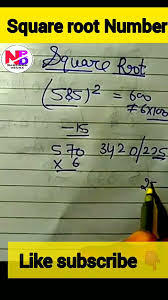 Square root Number
Square Root
(585)² = 600
= 6×100
-15
570 3420/225
× 6
25
Like subscribe 👇